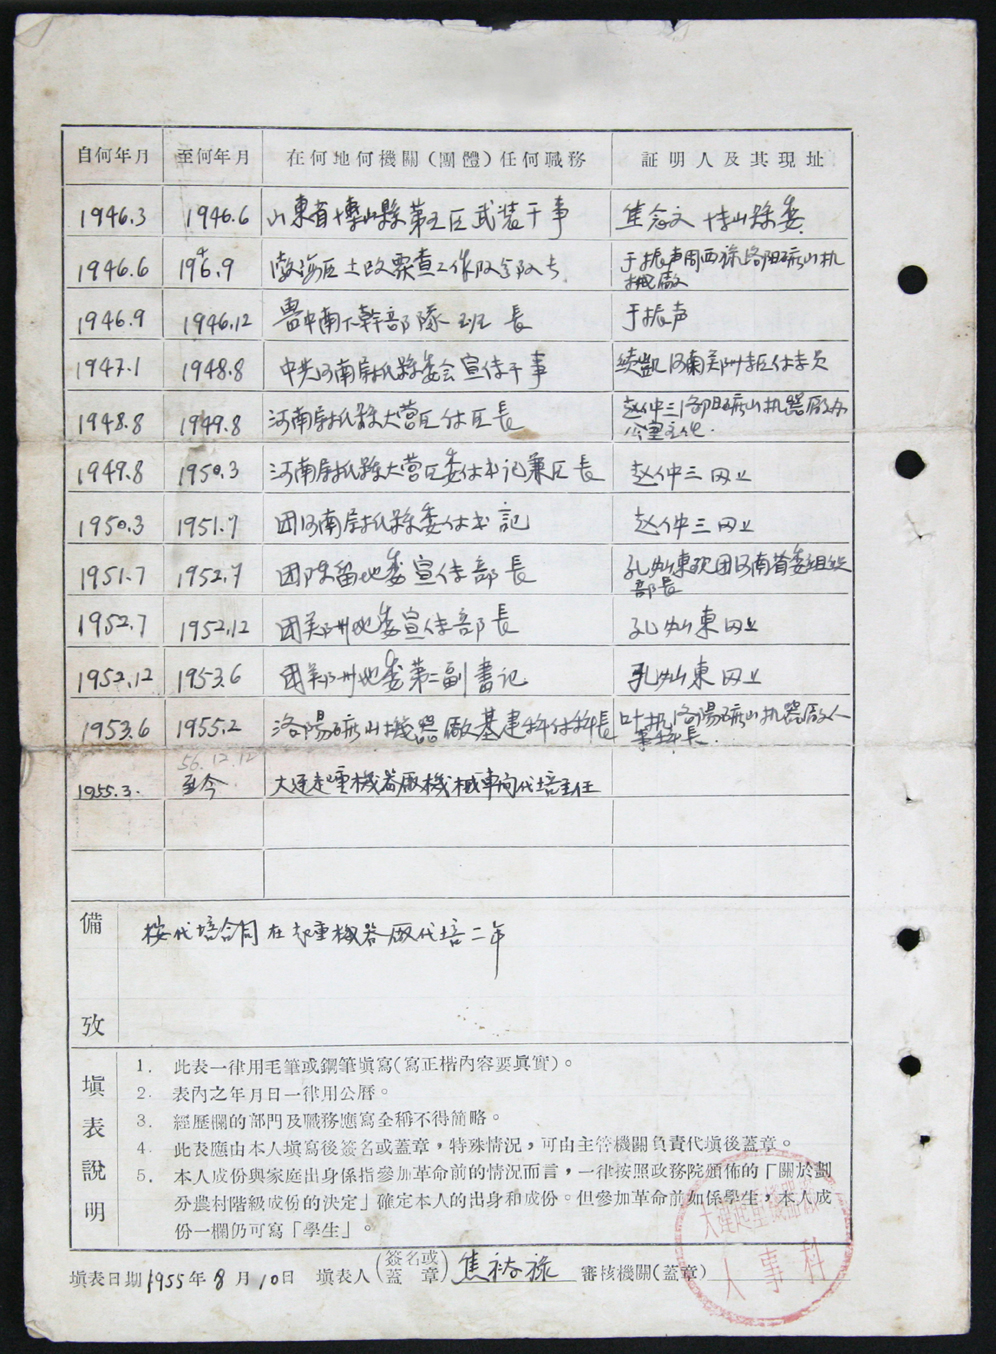 自何年月 至何年月 在何地何機關(團體)任何職務 証明人及其現址
1946.3 1946.6 山東省博山縣第五区武装干事 焦念文 博山縣委
1946.6 1946.9 渤海区土改票查工作队分队长 于振声周西禄洛阳矿山机
械廠
1946.9 1946.12 魯中南下幹部隊班長 于振声
1947.1 1948.8 中共河南尉氏縣委会宣传干事 河南郑州
1948.8 1949.8 河南尉氏縣大营区付区長 赵仲三洛阳矿山机器廠办
公室主任.
1949.8 1950.3 河南尉氏縣大营区委付书记兼区長 赵仲三 同上
1950.3 1951.7 团河南尉氏縣委付书記 赵仲三 同上
1951.7 1952.7 团陈留地委宣传部長 孔灿東 团河南省委组织
部長
1952.7 1952.12 团郑州地委宣传部長 孔灿東 同上
1952.12 1953.6 团郑州地委第二副書记 孔灿東 同上
1953.6 1955.2 洛陽矿山機器廠基建科付科長 叶 洛陽矿山机器廠人
事科長.
56.12.12
1955.3. 至今 大连起重機器廠機械車间代培主任
備 按代培合同在起重機器廠代培二年
攷
填表說明
1. 此表一律用毛筆或鋼筆塡寫(寫正楷內容要眞實)。
2. 表內之年月日一律用公曆。
3. 經歷欄的部門及職務應寫全稱不得簡略。
4. 此表應由本人塡寫後簽名或蓋章，特殊情況，可由主管機關負責代塡後蓋章。
5. 本人成份與家庭出身係指參加革命前的情況而言，一律按照政务院頒佈的「關於劃
分農村階級成份的决定」確定本人的出身和成份。但參加革命前如係學生，本人成
份一欄仍可寫「學生」。
大連起重機器廠
人事科
填表日期 1955年8月10日 填表人(簽名或蓋章) 焦裕禄 審核機關(蓋章)